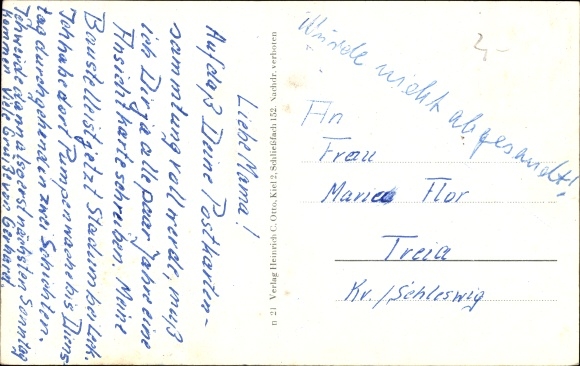 Liebe Mama!
Auf daß Deine Postkarten-
sammlung voll werde, muß
ich Dir ja alle paar Jahre eine
Ansichtkarte schreiben. Meine
Baustelle ist jetzt Stadum bei Leck.
Ich habe dort Pumpenwache bis Diens-
tag durchgehend in zwei Schichten.
Ich werde dann also erst nächsten Sonntag
kommen. Viele Grüße von Gerhard.
n 21 Verlag Heinrich C. Otto, Kiel 2, Schließfach 152. Nachdr. verboten
Wurde nicht abgesandt!
2,-
An
Frau
Maria Flor
Treia
Kr./Schleswig